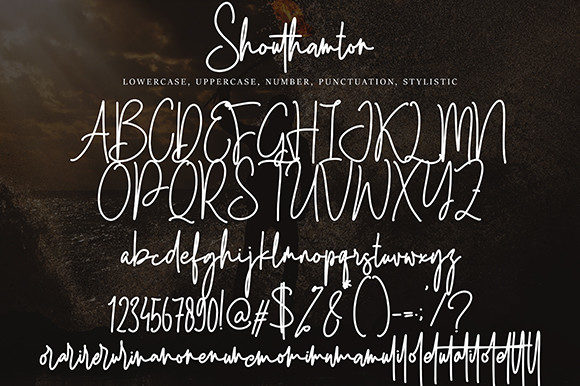 Shouthamton
LOWERCASE, UPPERCASE, NUMBER, PUNCTUATION, STYLISTIC
ABCDEFGHIJKLMN
OPQRSTUVWXYZ
abcdefghijklmnopqrstuvwxyz
1234567890!@#$%&*()-=.;'/?